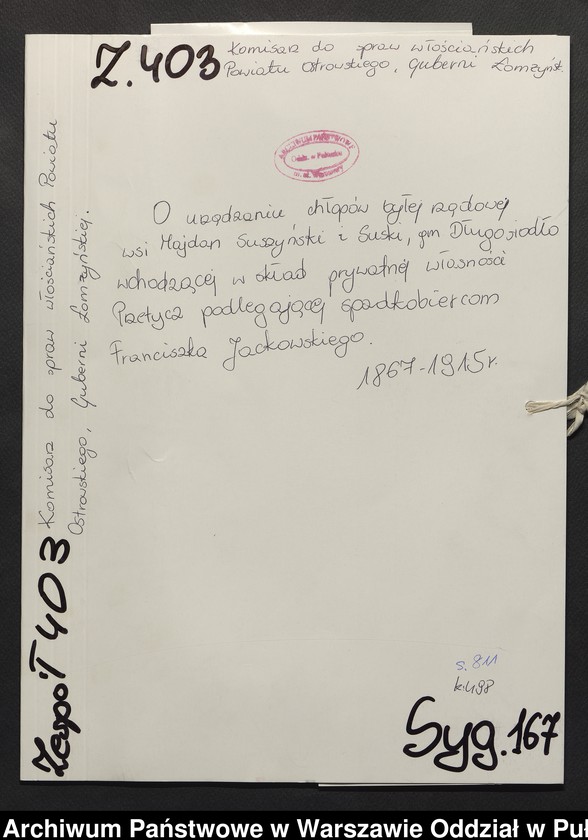 Z. 403 Komisarz do spraw włościańskich
Powiatu Ostrowskiego, Guberni Łomżyńsk.
ARCHIWUM PAŃSTWOWE
Oddz. w Pułtusku
m. st. Warszawy
O urządzeniu chłopów byłej rządowej
wsi Majdan Suszyński i Suski, gm Długosiodło
wchodzącej w skład prywatnej własności
Przetycz podlegającej spadkobiercom
Franciszka Jackowskiego.
1867-1915r.
Zespół 403 Komisarz do spraw włościańskich Powiatu
Ostrowskiego, Guberni Łomżyńskiej.
s. 811
k. 498
Syg. 167
Archiwum Państwowe w Warszawie Oddział w Puł